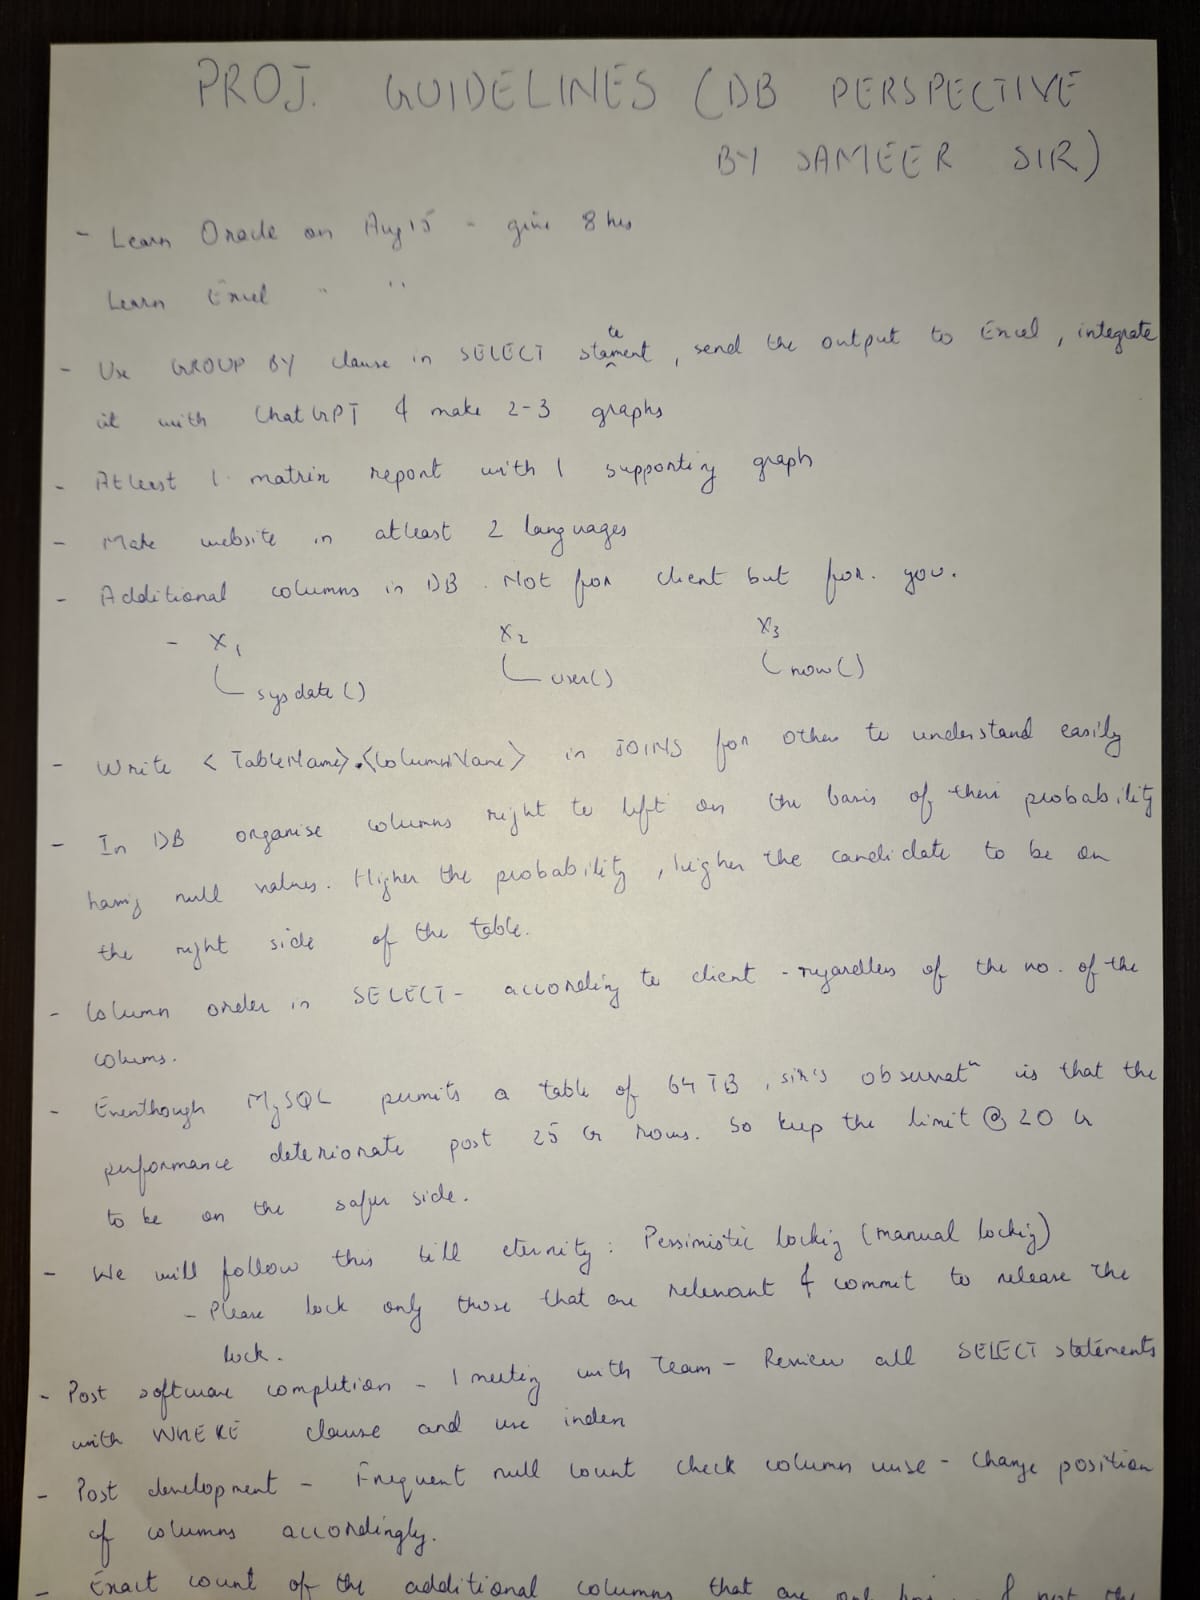 PROJ. GUIDELINES (DB PERSPECTIVE
BY SAMEER SIR)
- Learn Oracle on Aug 15 - give 8 hrs
Learn Excel " "
- Use GROUP BY clause in SELECT statement, send the output to Excel, integrate
it with ChatGPT & make 2-3 graphs
- Atleast 1 matrix report with 1 supporting graph
- Make website in atleast 2 languages
- Additional columns in DB. Not for client but for you.
- X1 X2 X3
sysdate() user() now()
- Write <TableName>.<ColumnName> in JOINS for other to understand easily
- In DB organise columns right to left on the basis of their probability
having null values. Higher the probability, higher the candidate to be on
the right side of the table.
- Column order in SELECT - according to client - regardless of the no. of the
colums.
- Eventhough MySQL permits a table of 64 TB, sir's observatn is that the
performance deteriorate post 25 Cr rows. So keep the limit @ 20 Cr
to be on the safer side.
- We will follow this till eternity: Pessimistic locking (manual locking)
- Please lock only those that are relevant & commit to release the
lock.
- Post software completion - 1 meeting with Team - Review all SELECT statements
with WHERE clause and use index
- Post development - Frequent null count check column wise - Change position
of columns accordingly.
- Exact count of the additional columns that are